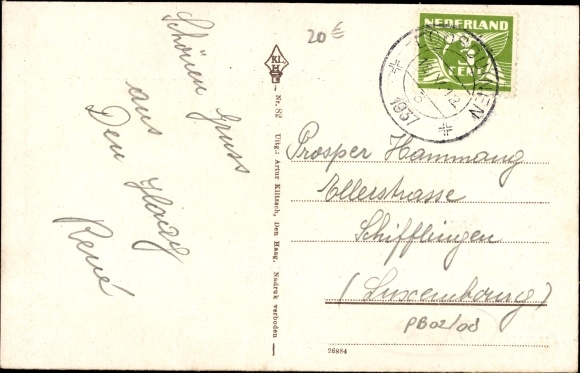 Schönen Gruss
aus
Den Haag
René
20€
KL
H
Nr. 82 Uitg. Artur Klitzsch, Den Haag. Nadruk verboden
26884
NEDERLAND
CENT
1937
Prosper Hammang
Ellerstrasse
Schifflingen
(Luxembourg)
PB02/08